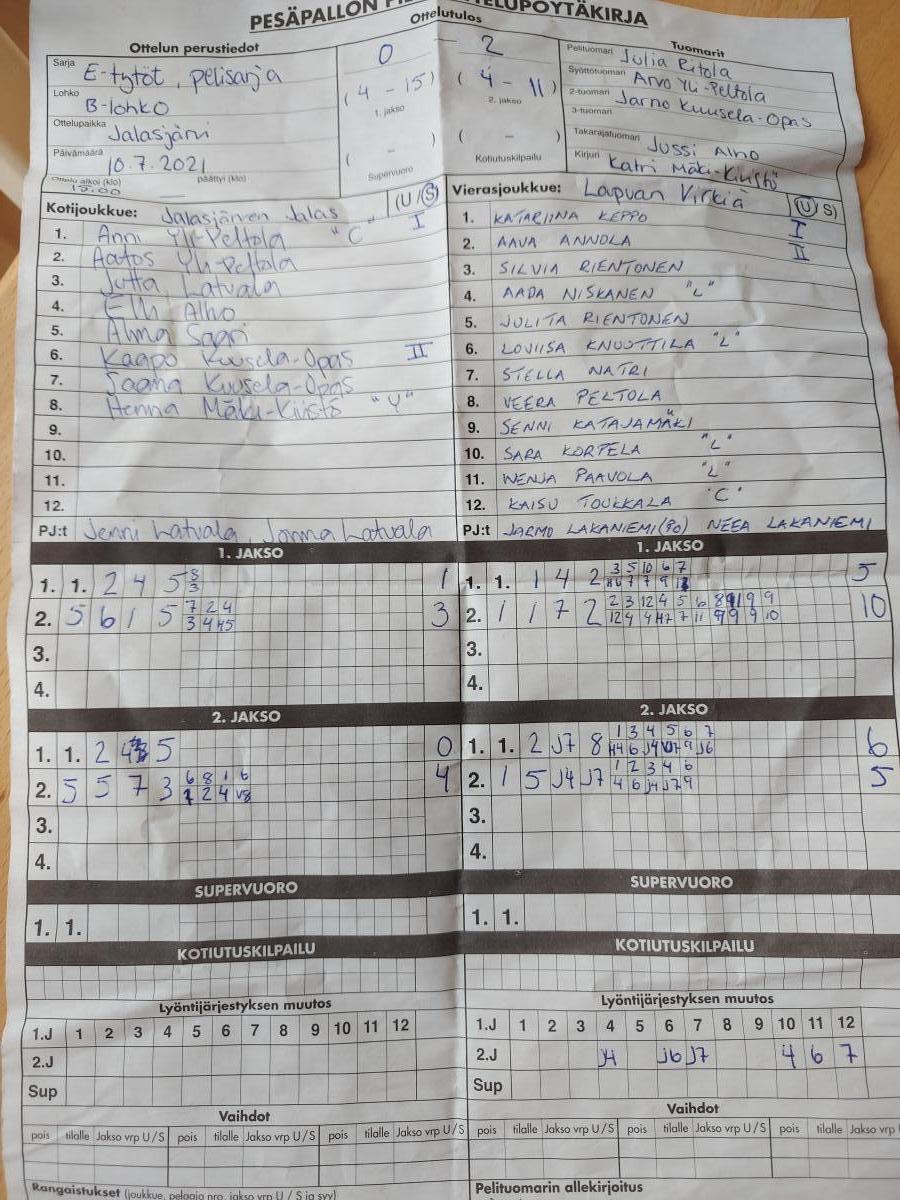 PESÄPALLON OTTELUPÖYTÄKIRJA
Ottelun perustiedot
Ottelutulos
Tuomarit
Sarja E-tytöt, pelisarja
Lohko B-lohko
Ottelupaikka Jalasjärvi
Päivämäärä 10.7.2021
Ottelu alkoi (klo) päättyi (klo)
0 - 2
( 4 - 15 ) ( 4 - 11 )
1. jakso 2. jakso
( - ) ( - )
Supervuoro Kotiutuskilpailu
Pelituomari Julia Ritola
Syöttötuomari Arvo Yli-Peltola
2-tuomari Jarno Kuusela-Opas
3-tuomari
Takarajatuomari Jussi Alho
Kirjuri Katri Mäki-Kiistö
Kotijoukkue: Jalasjärven Jalas (U/S)
1. Anni Yli-Peltola "C" I
2. Aatos Yli-Peltola
3. Jutta Latvala
4. Elli Alho
5. Alma Saari
6. Kaapo Kuusela-Opas II
7. Saana Kuusela-Opas
8. Henna Mäki-Kiistö "Y"
9.
10.
11.
12.
PJ:t Jenni Latvala, Jonna Latvala
Vierasjoukkue: Lapuan Virkiä (U/S)
1. KATARIINA KEPPO I
2. AAVA ANNOLA II
3. SILVIA RIENTONEN
4. AADA NISKANEN "L"
5. JULITA RIENTONEN
6. LOVIISA KNUUTTILA "L"
7. STELLA NATRI
8. VEERA PELTOLA
9. SENNI KATAJAMÄKI
10. SARA KORPELA "L"
11. WENJA PAAVOLA "L"
12. KAISU TOUKKALA "C"
PJ:t JARMO LAKANIEMI (80) NEEA LAKANIEMI
1. JAKSO
1. 1. 2 4 5 1
2. 5 6 1 5 7 2 4 3
3.
4.
2. JAKSO
1. 1. 2 4 5 0
2. 5 5 7 3 6 8 1 6 4
3.
4.
SUPERVUORO
1. 1.
KOTIUTUSKILPAILU
1. JAKSO
1. 1. 1 4 2 3 5 10 6 7 5
2. 1 1 7 2 2 3 12 4 5 6 10
3.
4.
2. JAKSO
1. 1. 2 J7 8 1 3 4 5 6 7 6
2. 1 5 J4 J7 1 2 3 4 6 5
3.
4.
SUPERVUORO
1. 1.
KOTIUTUSKILPAILU
Lyöntijärjestyksen muutos
1.J 1 2 3 4 5 6 7 8 9 10 11 12
2.J
Sup
Vaihdot
pois tilalle Jakso vrp U/S pois tilalle Jakso vrp U/S pois tilalle Jakso vrp U/S
Rangaistukset (joukkue, pelaaja nro, jakso vrp U / S ja syy)
Lyöntijärjestyksen muutos
1.J 1 2 3 4 5 6 7 8 9 10 11 12
2.J J4 J6 J7 4 6 7
Sup
Vaihdot
pois tilalle Jakso vrp U/S pois tilalle Jakso vrp U/S pois tilalle Jakso vrp
Pelituomarin allekirjoitus